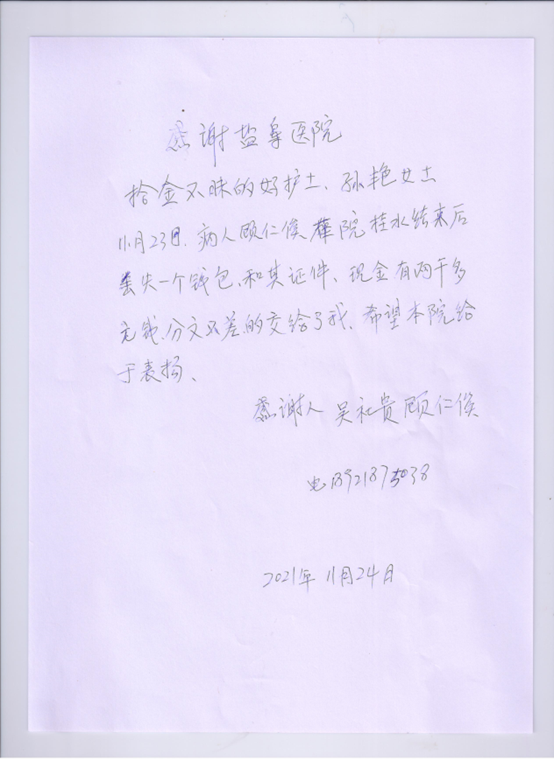 感谢盐阜医院
拾金不昧的好护士、孙艳女士
11月23日.病人顾仁俊 院挂水结束后
丢失一个钱包、和其证件、现金有两千多
元钱.分文不差的交给了我、希望本院给
于表扬、
感谢人 吴社贵 顾仁俊
电
2021年11月24日